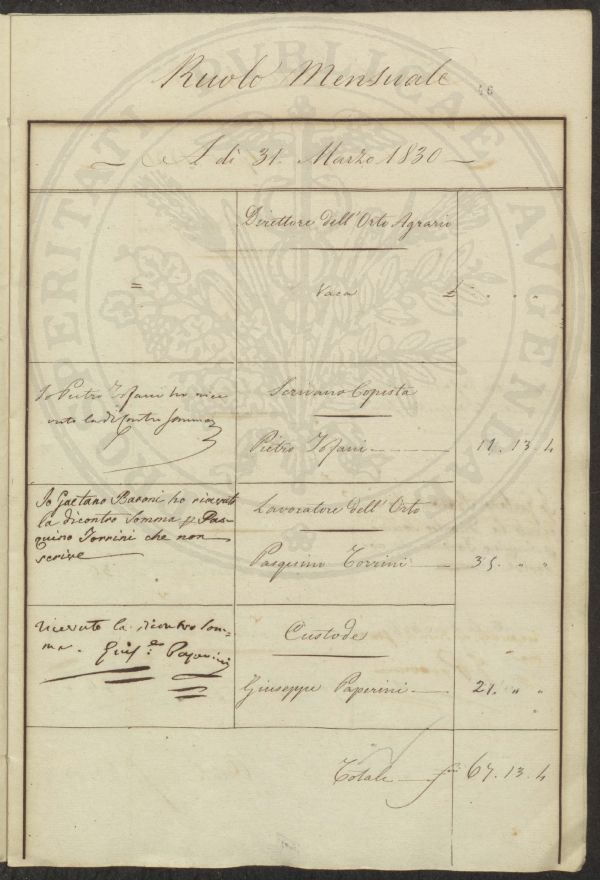 Ruolo Mensuale
46
A dì 31. Marzo 1830
Direttore dell'Orto Agrario
=
Vaca £ " " "
Io Pietro Tofani ho rice
vuto la di Contro Somma
Scrivano Copista
Pietro Tofani 11. 13. 4
Io Gaetano Baroni ho ricevuto
la dicontro Somma p Pas-
quino Torrini che non
scrive
Lavoratore dell'Orto
Pasquino Torrini 35. " "
ricevuto la dicontro Som-
ma. Gius.e Paperini
Custode
Giuseppe Paperini 21. " "
Totale 67. 13. 4
PERITATI PVBLICAE AVGENDAE